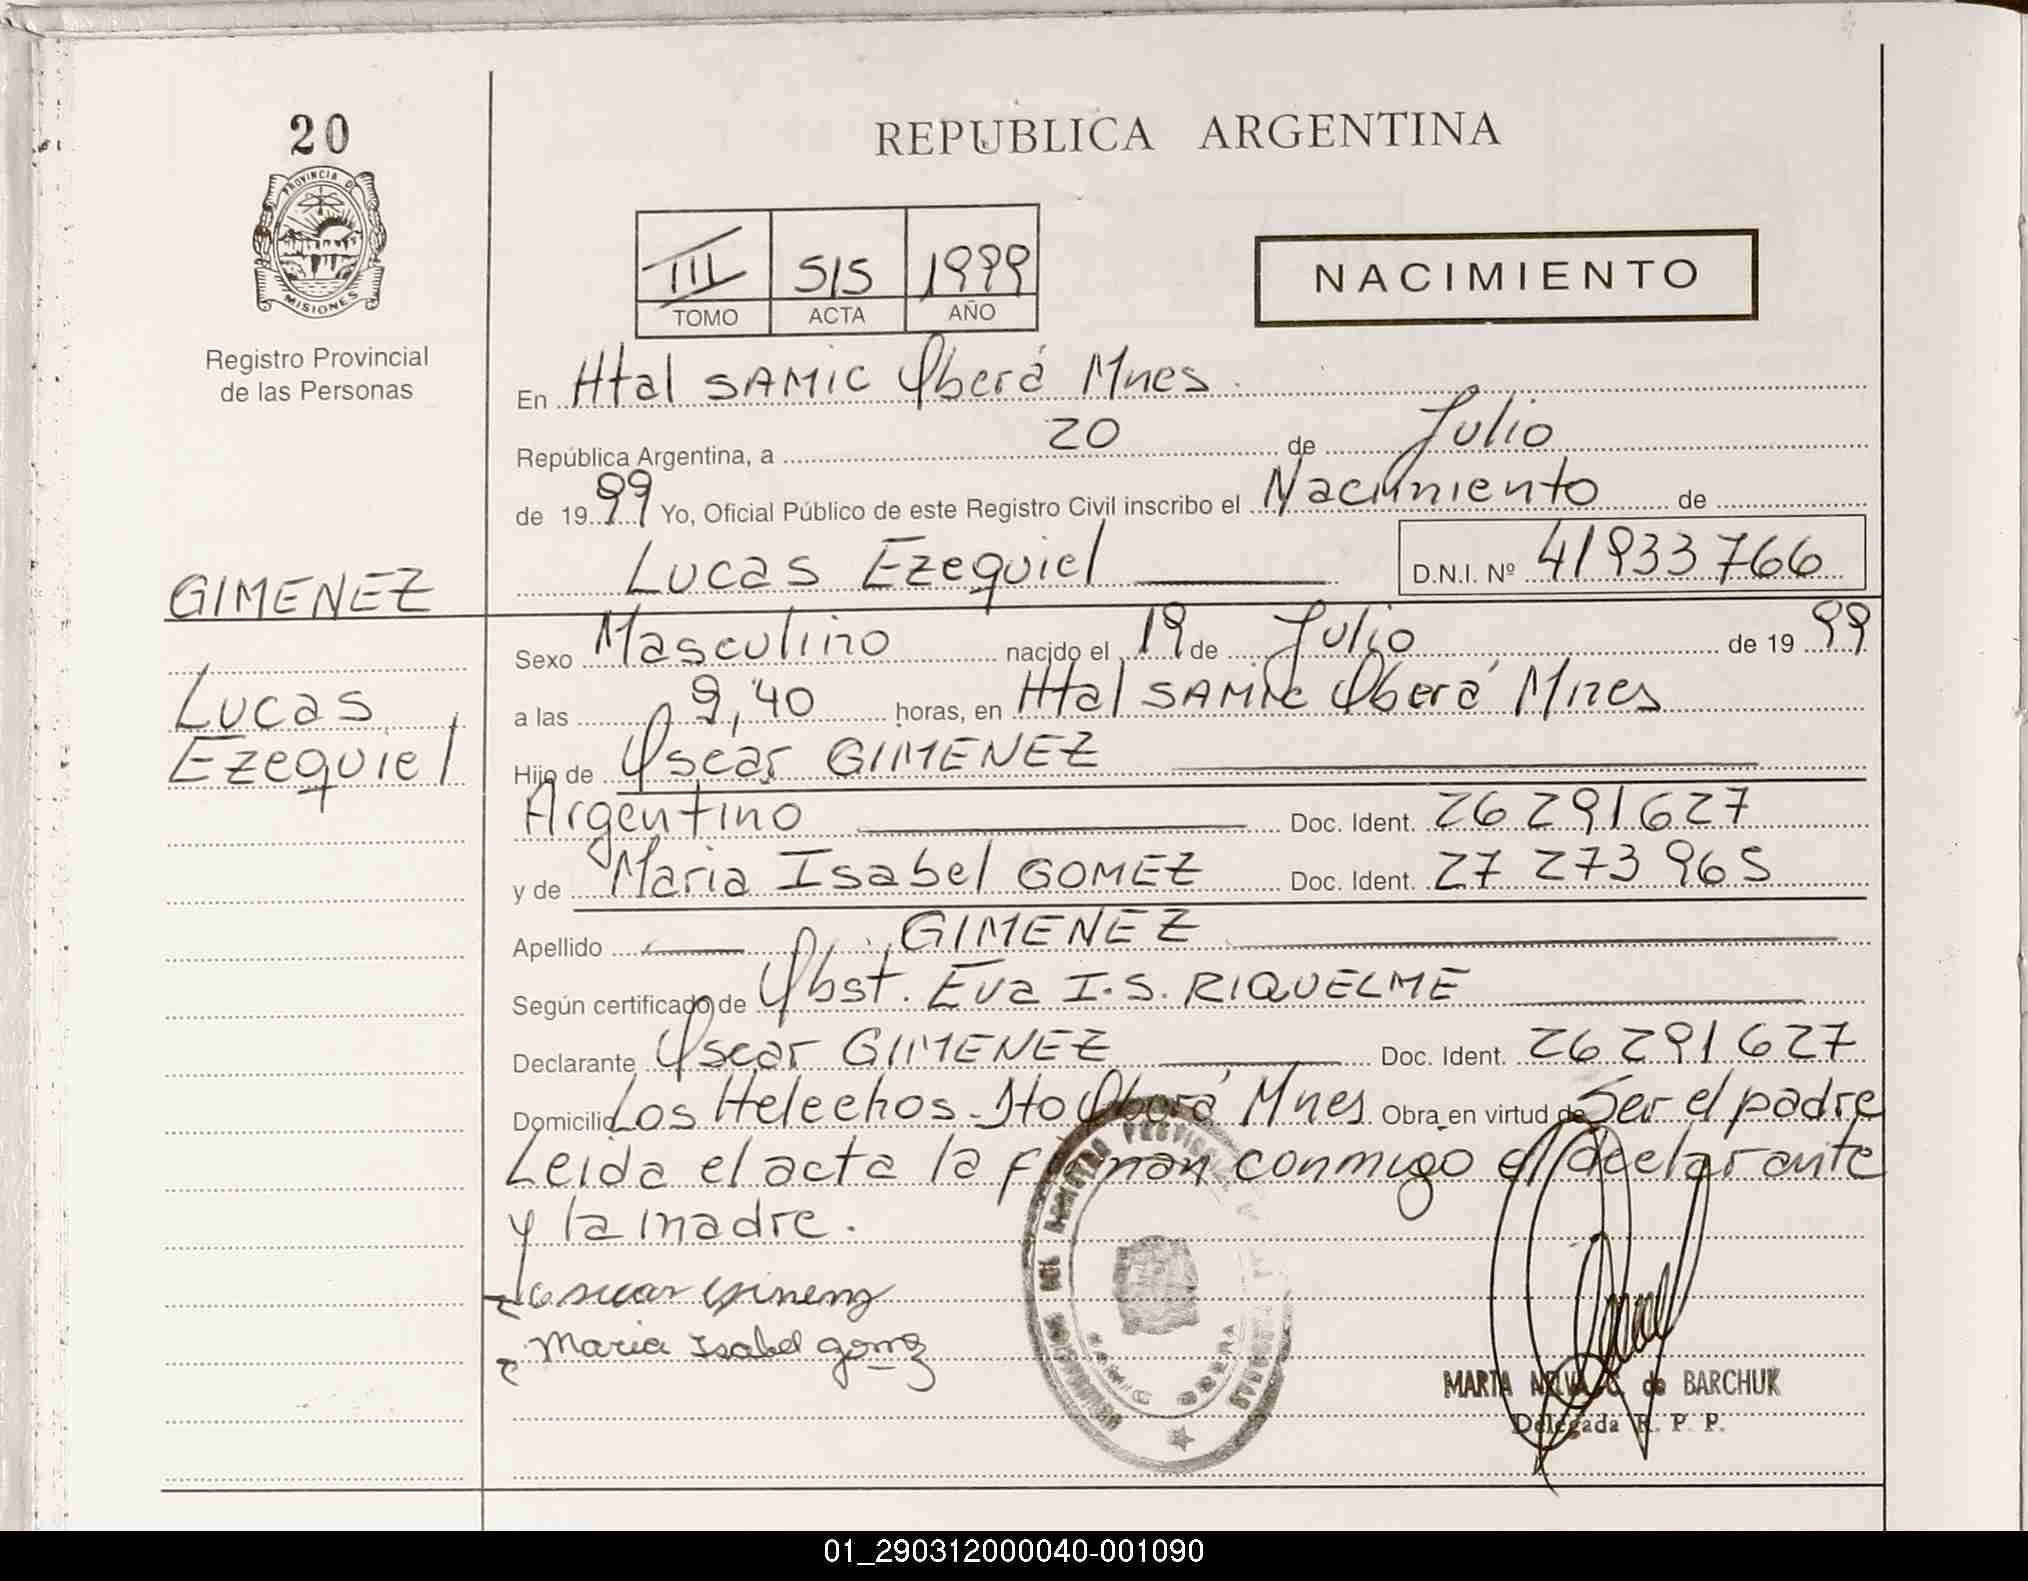 20
PROVINCIA D
MISIONES
Registro Provincial
de las Personas
GIMENEZ
Lucas
Ezequiel
REPUBLICA ARGENTINA
III 515 1999
TOMO ACTA AÑO
NACIMIENTO
En Htal SAMIC Oberá Mnes.
República Argentina, a 20 de Julio
de 1999 Yo, Oficial Público de este Registro Civil inscribo el Nacimiento de
Lucas Ezequiel D.N.I. Nº 41933766
Sexo Masculino nacido el 19 de Julio de 1999
a las 9,40 horas, en Htal SAMIC Oberá Mnes
Hijo de Oscar GIMENEZ
Argentino Doc. Ident. 26 291 627
y de Maria Isabel GOMEZ Doc. Ident. 27 273 965
Apellido GIMENEZ
Según certificado de Obst. Eva I.S. RIQUELME
Declarante Oscar GIMENEZ Doc. Ident. 26 291 627
Domicilio Los Helechos - Dto Oberá Mnes Obra en virtud de Ser el padre
Leida el acta la firman conmigo el declarante
y la madre.
oscar Gimenez
Maria Isabel gomez
SAMIC OBERA
MARTA NELVA G. de BARCHUK
Delegada R. P. P.
01_290312000040-001090